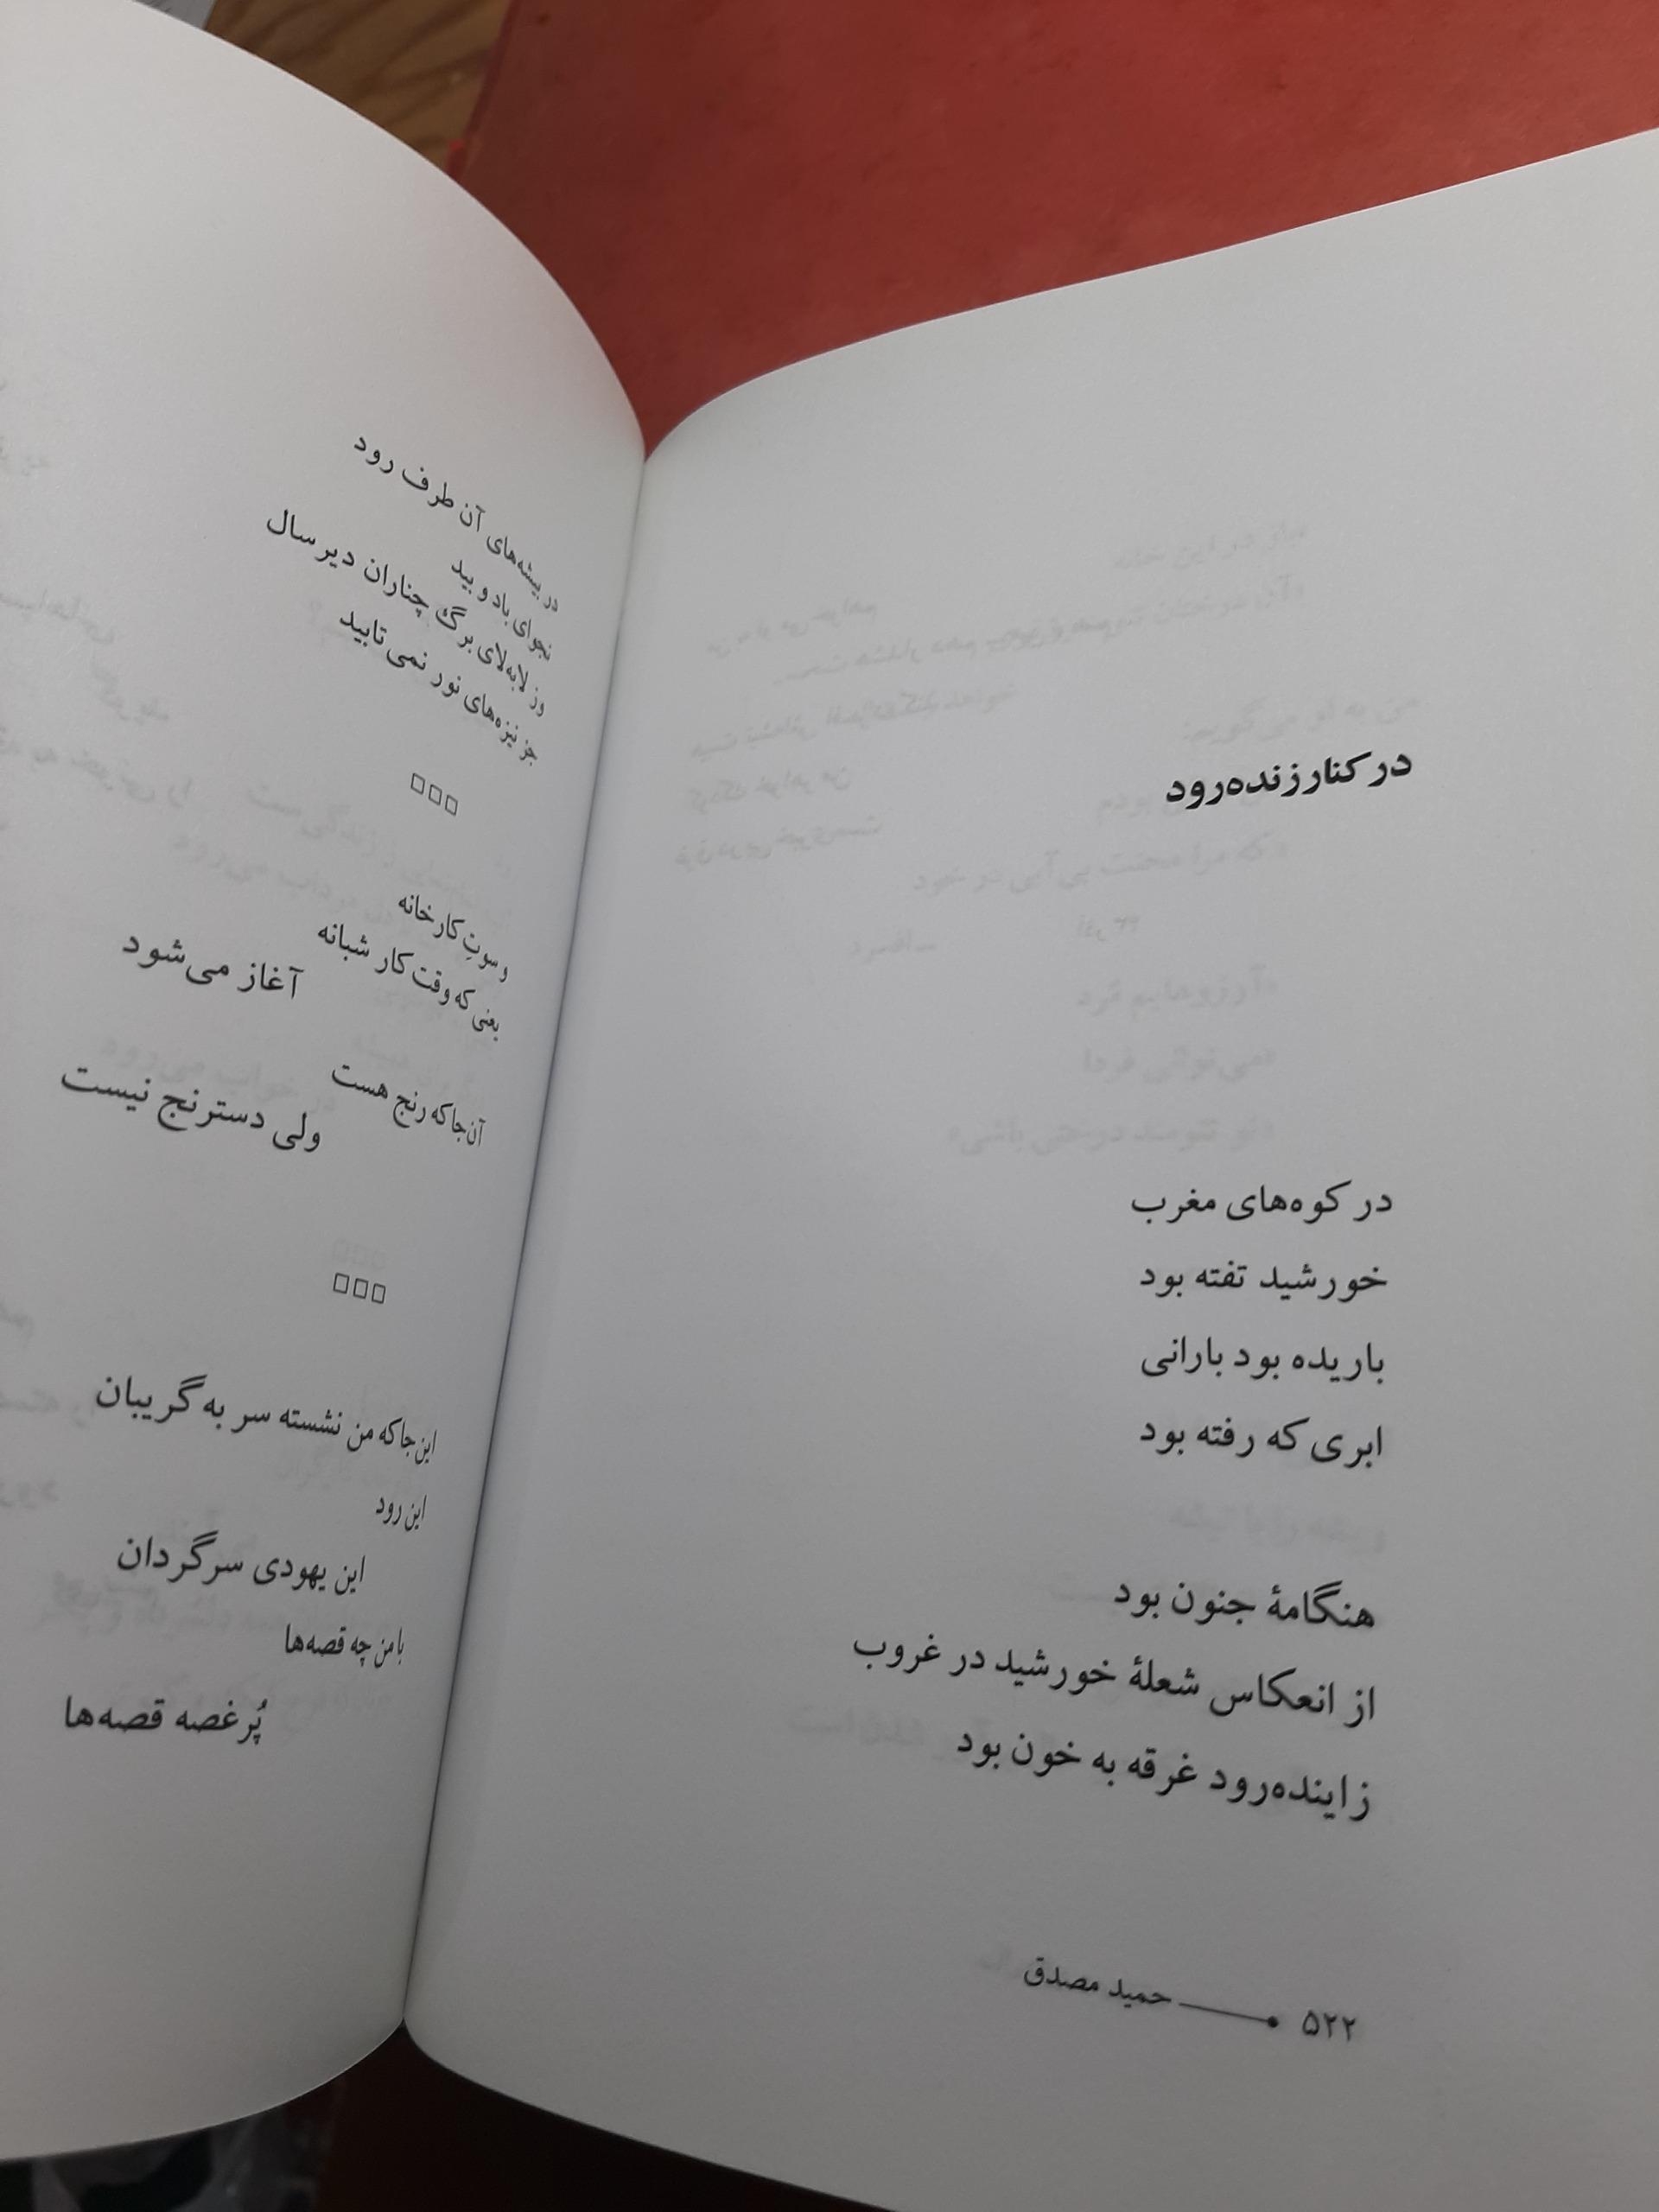 در کنار زنده‌رود
در کوه‌های مغرب
خورشید تفته بود
باریده بود بارانی
ابری که رفته بود
هنگامهٔ جنون بود
از انعکاس شعلهٔ خورشید در غروب
زاینده‌رود غرقه به خون بود
۵۲۲ حمید مصدق
در بیشه‌های آن طرف رود
نجوای باد و بید
وز لابه‌لای برگ چناران دیرسال
جز نیزه‌های نور نمی تابید
و سوتِ کارخانه
یعنی که وقت کار شبانه
آغاز می‌شود
آن‌جا که رنج هست
ولی دسترنج نیست
این‌جا که من نشسته سر به گریبان
این رود
این یهودی سرگردان
با من چه قصه‌ها
پُرغصه قصه‌ها